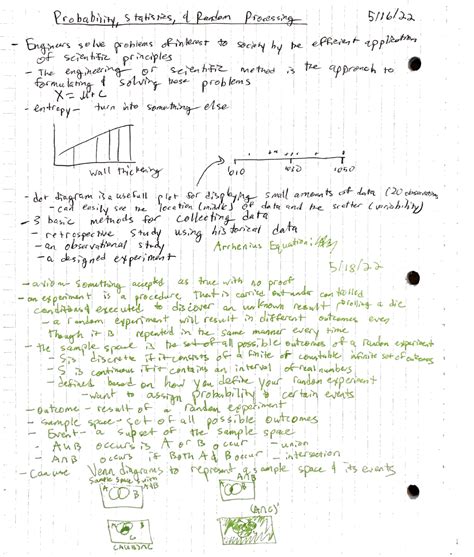 Probability, Statistics, & Random Processing 5/16/22
- Engineers solve problems of interest to society by the efficient application
of scientific principles
- The engineering or scientific method is the approach to
formulating & solving those problems
X = μ + ε
- entropy - turn into something else
wall thickening
1010 1030 1050
- dot diagram is a usefull plot for displaying small amounts of data (20 observations
- can easily see the location (middle) of data and the scatter (variability)
- 3 basic methods for collecting data
- retrospective study using historical data
- an observational study
- a designed experiment
Arrhenius Equation:
5/18/22
- axiom - something accepted as true with no proof
- an experiment is a procedure that is carried out under controlled
conditions executed to discover an unknown result rolling a die
- a random experiment will result in different outcomes even
though it is repeated in the same manner every time
- the sample space is the set of all possible outcomes of a random experiment
- S is discrete if it consists of a finite of countable infinite set of outcomes
- S is continuous if it contains an interval of real numbers
- defined based on how you define your random experiment
- want to assign probability to certain events
- outcome - result of a random experiment
- sample space - set of all possible outcomes
- Event - a subset of the sample space
- A∪B occurs is A or B occur - union
- A∩B occurs if Both A & B occur - intersection
- Can use Venn diagrams to represent a sample space & its events
Sample Space S with
A∩B
A∩B
(A∪B)∩C
(A∩C)'